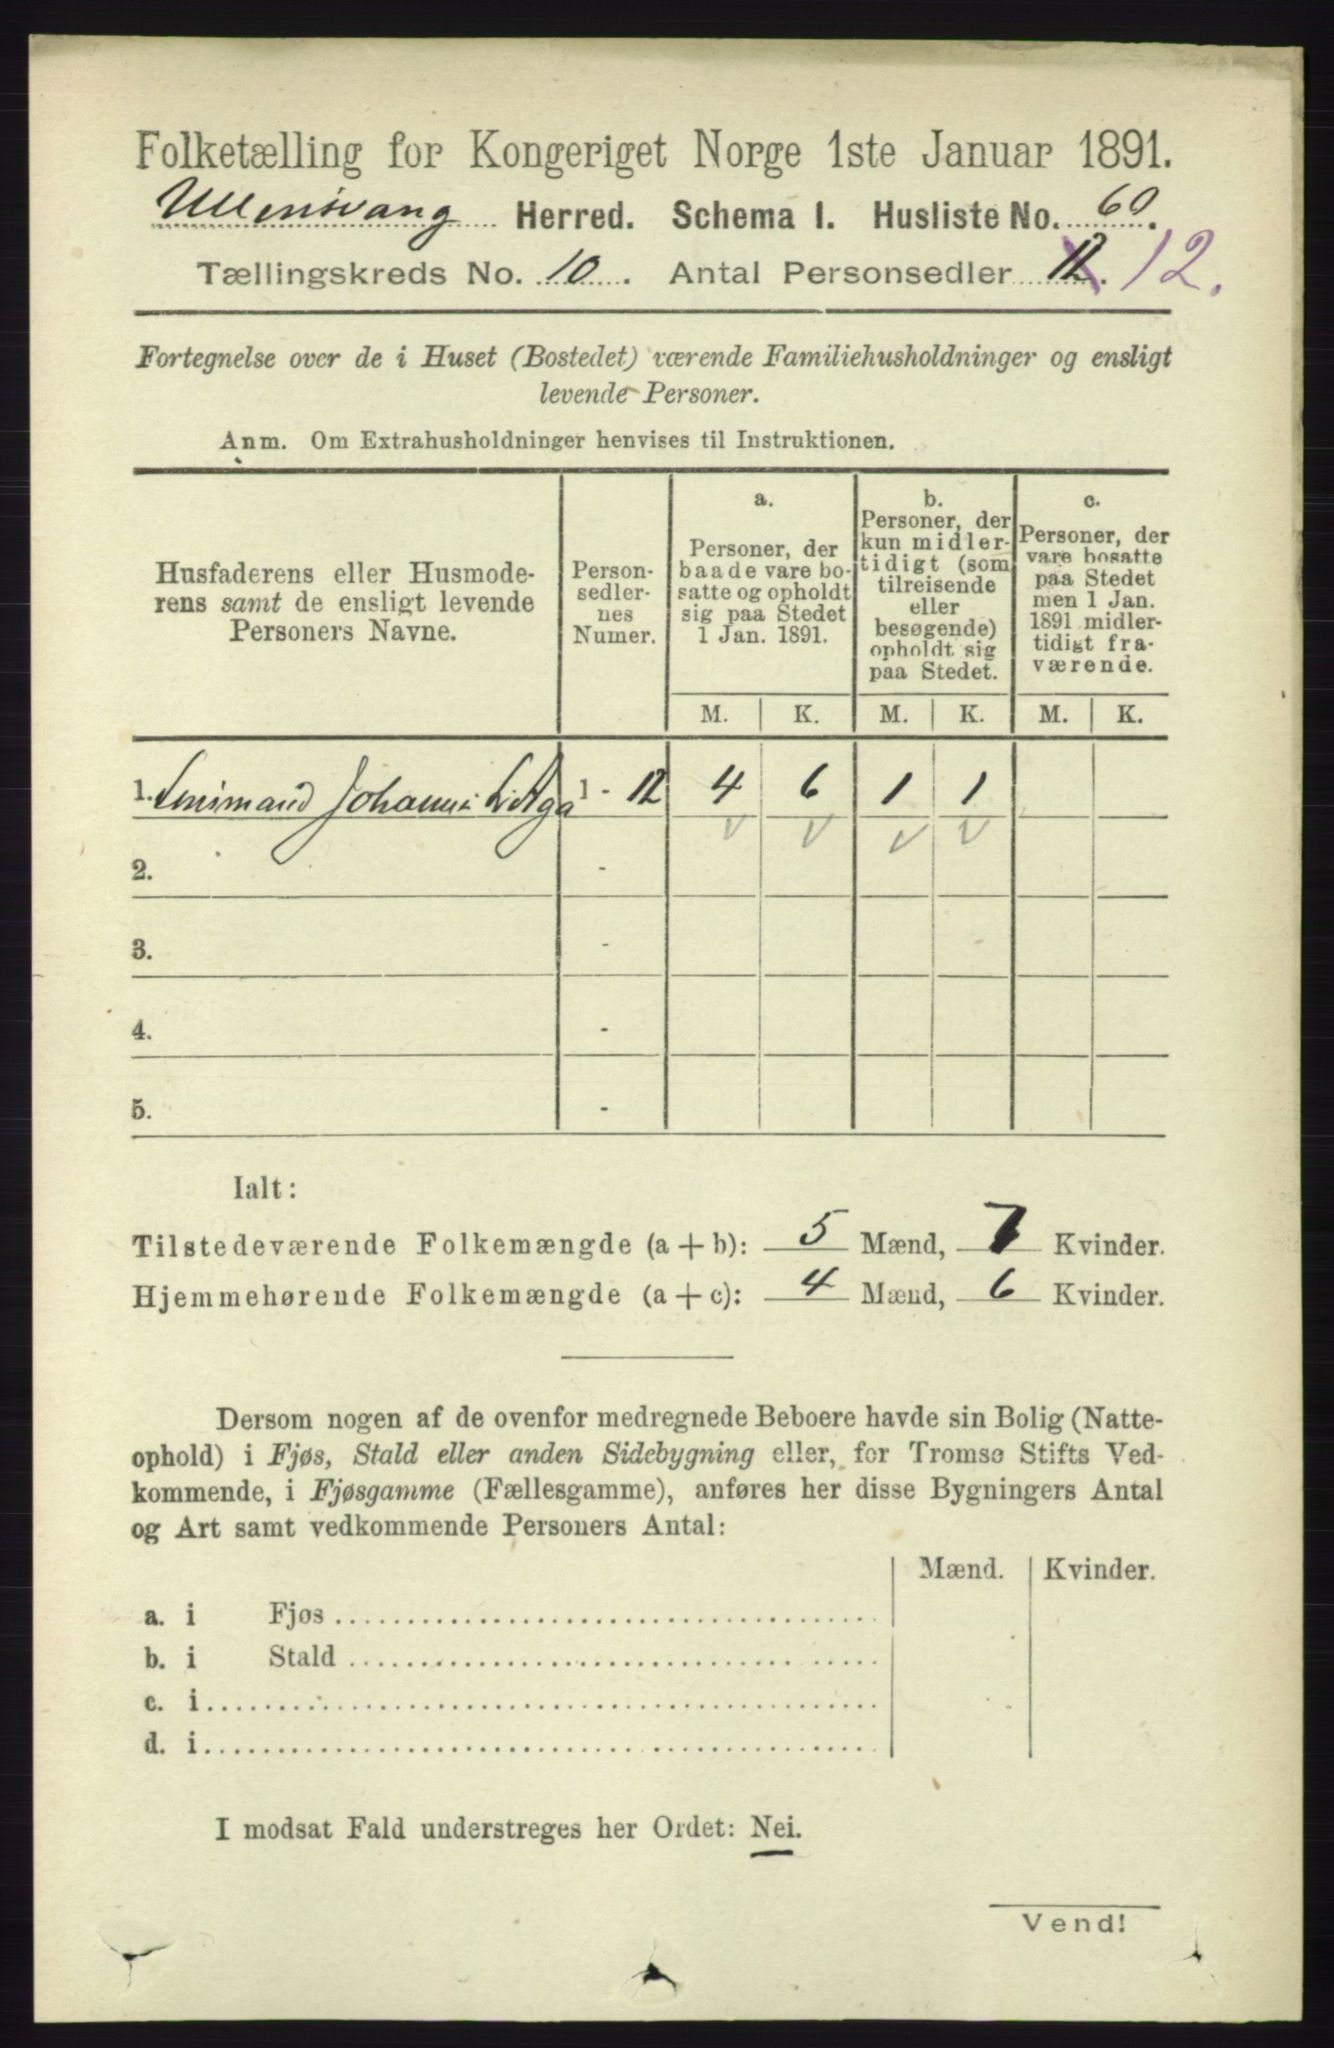 Folketælling for Kongeriget Norge 1ste Januar 1891.
Ullensvang Herred. Schema I. Husliste No. 60.
Tællingskreds No. 10. Antal Personsedler 12. 12.
Fortegnelse over de i Huset (Bostedet) værende Familiehusholdninger og ensligt
levende Personer.
Anm. Om Extrahusholdninger henvises til Instruktionen.
Husfaderens eller Husmode-
rens samt de ensligt levende
Personers Navne.
Person-
sedler-
nes
Numer.
a.
Personer, der
baade vare bo-
satte og opholdt
sig paa Stedet
1 Jan. 1891.
b.
Personer, der
kun midler-
tidigt (som
tilreisende
eller
besøgende)
opholdt sig
paa Stedet.
c.
Personer, der
vare bosatte
paa Stedet
men 1 Jan.
1891 midler-
tidigt fra-
værende.
M. K. M. K. M. K.
1. Johannes Aga 1 - 12 4 6 1 1
2. -
3. -
4. -
5. -
Ialt:
Tilstedeværende Folkemængde (a + b): 5 Mænd, 7 Kvinder.
Hjemmehørende Folkemængde (a + c): 4 Mænd, 6 Kvinder.
Dersom nogen af de ovenfor medregnede Beboere havde sin Bolig (Natte-
ophold) i Fjøs, Stald eller anden Sidebygning eller, for Tromsø Stifts Ved-
kommende, i Fjøsgamme (Fællesgamme), anføres her disse Bygningers Antal
og Art samt vedkommende Personers Antal:
Mænd. Kvinder.
a. i Fjøs
b. i Stald
c. i
d. i
I modsat Fald understreges her Ordet: Nei.
Vend!